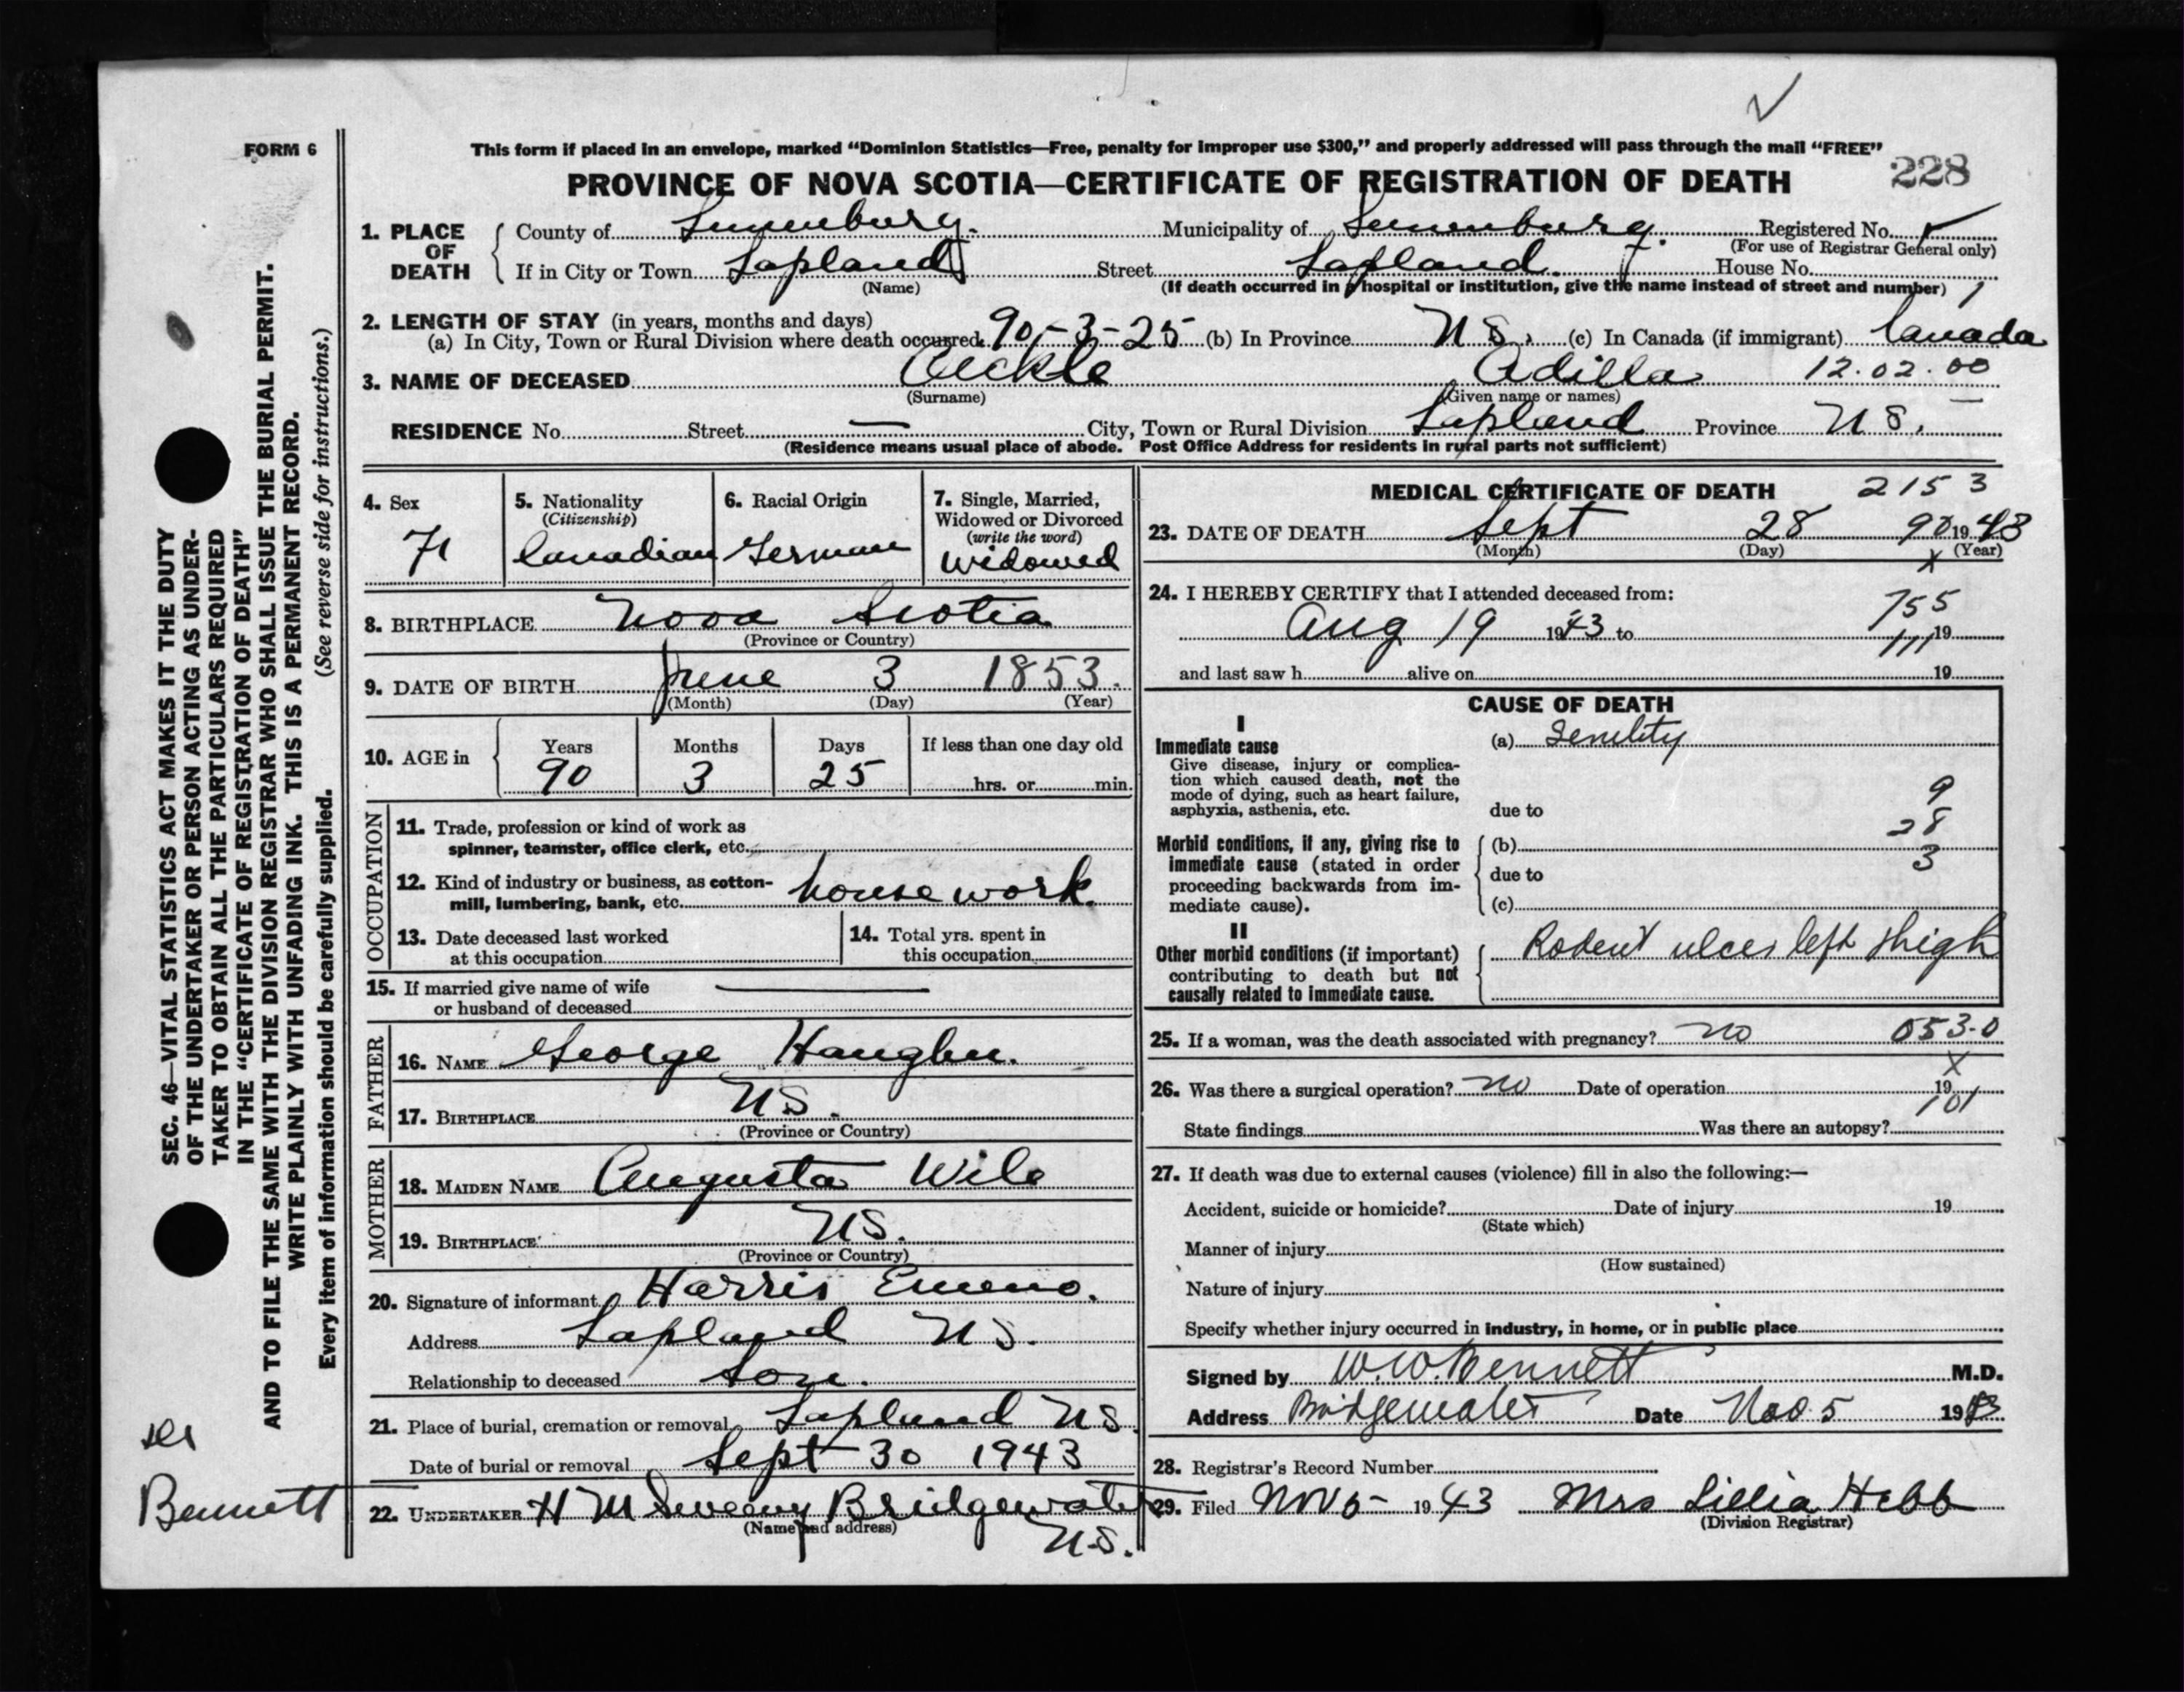 FORM 6
This form if placed in an envelope, marked “Dominion Statistics—Free, penalty for improper use $300,” and properly addressed will pass through the mail “FREE”
PROVINCE OF NOVA SCOTIA—CERTIFICATE OF REGISTRATION OF DEATH 228
1. PLACE OF DEATH
County of Lunenburg. Municipality of Lunenburg. Registered No.
(For use of Registrar General only)
If in City or Town Lapland Street Lapland. House No.
(Name) (If death occurred in a hospital or institution, give the name instead of street and number) 1
2. LENGTH OF STAY (in years, months and days)
(a) In City, Town or Rural Division where death occurred 90-3-25 (b) In Province N.S. (c) In Canada (if immigrant) Canada
3. NAME OF DECEASED Adilla 12.02.00
(Surname) (Given name or names)
RESIDENCE No. Street — City, Town or Rural Division Lapland Province N S.
(Residence means usual place of abode. Post Office Address for residents in rural parts not sufficient)
4. Sex
5. Nationality (Citizenship) Canadian
6. Racial Origin German
7. Single, Married, Widowed or Divorced (write the word) Widowed
8. BIRTHPLACE Nova Scotia
(Province or Country)
9. DATE OF BIRTH June 3 1853.
(Month) (Day) (Year)
10. AGE in Years 90 Months 3 Days 25 If less than one day old
hrs. or min.
OCCUPATION
11. Trade, profession or kind of work as
spinner, teamster, office clerk, etc.
12. Kind of industry or business, as cotton-
mill, lumbering, bank, etc. house work.
13. Date deceased last worked
at this occupation
14. Total yrs. spent in
this occupation
15. If married give name of wife
or husband of deceased
FATHER
16. NAME George
17. BIRTHPLACE NS.
(Province or Country)
MOTHER
18. MAIDEN NAME Augusta Wile
19. BIRTHPLACE NS.
(Province or Country)
20. Signature of informant Harris Emeno.
Address Lapland NS.
Relationship to deceased Son.
21. Place of burial, cremation or removal Lapland NS
Date of burial or removal Sept 30 1943
22. UNDERTAKER H M Sweeny Bridgewater
(Name and address)
N.S.
MEDICAL CERTIFICATE OF DEATH 2153
23. DATE OF DEATH Sept 28 90 1943
(Month) (Day) x (Year)
24. I HEREBY CERTIFY that I attended deceased from:
755
Aug 19 1943 to 19
111
and last saw h alive on 19
CAUSE OF DEATH
I
Immediate cause
Give disease, injury or complica-
tion which caused death, not the
mode of dying, such as heart failure,
asphyxia, asthenia, etc.
(a) Senility
9
due to
28
Morbid conditions, if any, giving rise to
immediate cause (stated in order
proceeding backwards from im-
mediate cause).
(b)
3
due to
(c)
II
Other morbid conditions (if important)
contributing to death but not
causally related to immediate cause.
Rodent ulcer left thigh
25. If a woman, was the death associated with pregnancy? no 053-0
X
26. Was there a surgical operation? no Date of operation 19
101
State findings Was there an autopsy?
27. If death was due to external causes (violence) fill in also the following:—
Accident, suicide or homicide? Date of injury 19
(State which)
Manner of injury
(How sustained)
Nature of injury
Specify whether injury occurred in industry, in home, or in public place
Signed by W.W.Bennett M.D.
Address Bridgewater Date Nov 5 1943
28. Registrar's Record Number
29. Filed Nov 5- 1943 Mrs Lillia Hebb
(Division Registrar)
SEC. 46—VITAL STATISTICS ACT MAKES IT THE DUTY
OF THE UNDERTAKER OR PERSON ACTING AS UNDER-
TAKER TO OBTAIN ALL THE PARTICULARS REQUIRED
IN THE “CERTIFICATE OF REGISTRATION OF DEATH”
AND TO FILE THE SAME WITH THE DIVISION REGISTRAR WHO SHALL ISSUE THE BURIAL PERMIT.
WRITE PLAINLY WITH UNFADING INK. THIS IS A PERMANENT RECORD.
Every item of information should be carefully supplied. (See reverse side for instructions.)
Bennett